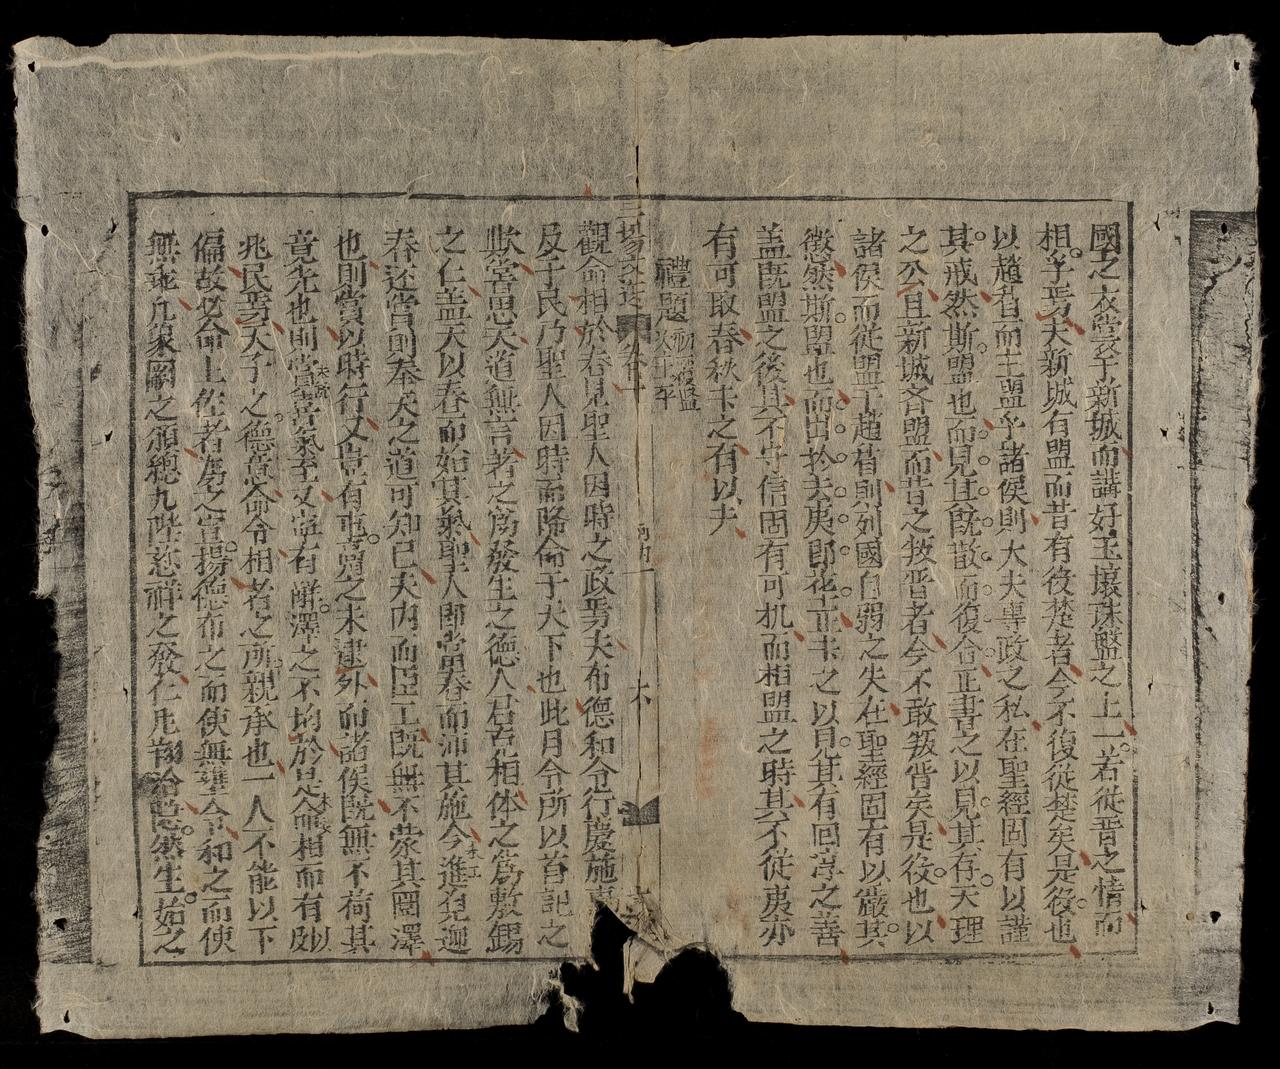 國之衣裳于新城而講好玉壤珠盤之上一若從晋之情而
相孚焉夫新城有盟而昔有役楚者今不復從楚矣是役也
以趙盾而主盟乎諸侯則大夫專政之私在聖經固有以謹
其戒然斯盟也而見其既散而復合正書之以見其存天理
之公且新城吝盟而昔之叛晋者今不敢叛背矣是役也以
諸侯而從盟于趙盾則列國自弱之失在聖經固有以嚴其
懲然斯盟也而出於去夷即花正卞之以見其有回淳之善
盖既盟之後其不守信固有可机而相盟之時其不從夷亦
有可取春秋卞之有以夫
禮題
三場文選 卷十
觀命相於春見聖人因時之政焉夫布德和令行慶施惠
及于民乃聖人因時而降命于天下也此月令所以首記之
歟嘗思天道無言著之爲發生之德人君克相体之爲敷錫
之仁盖天以春而始其氣聖人即當春而沛其施今進君迎
春还嘗則奉天之道可知已夫内而臣工既無不蒙其圖澤
也則賞以時行又豈有惠賚之未逮外而諸侯既無不荷其
竟先也則當喜氣至又寧有醉澤之不均於是命相而有以
兆民焉天子之德意命令相者之所親承也一人不能以下
偏故必命上佐者爲之宣揚德布之而使無壅令和之而使
無乖凡象闕之頒總九陛慈祥之發仁凡翔洽陰然生姑之